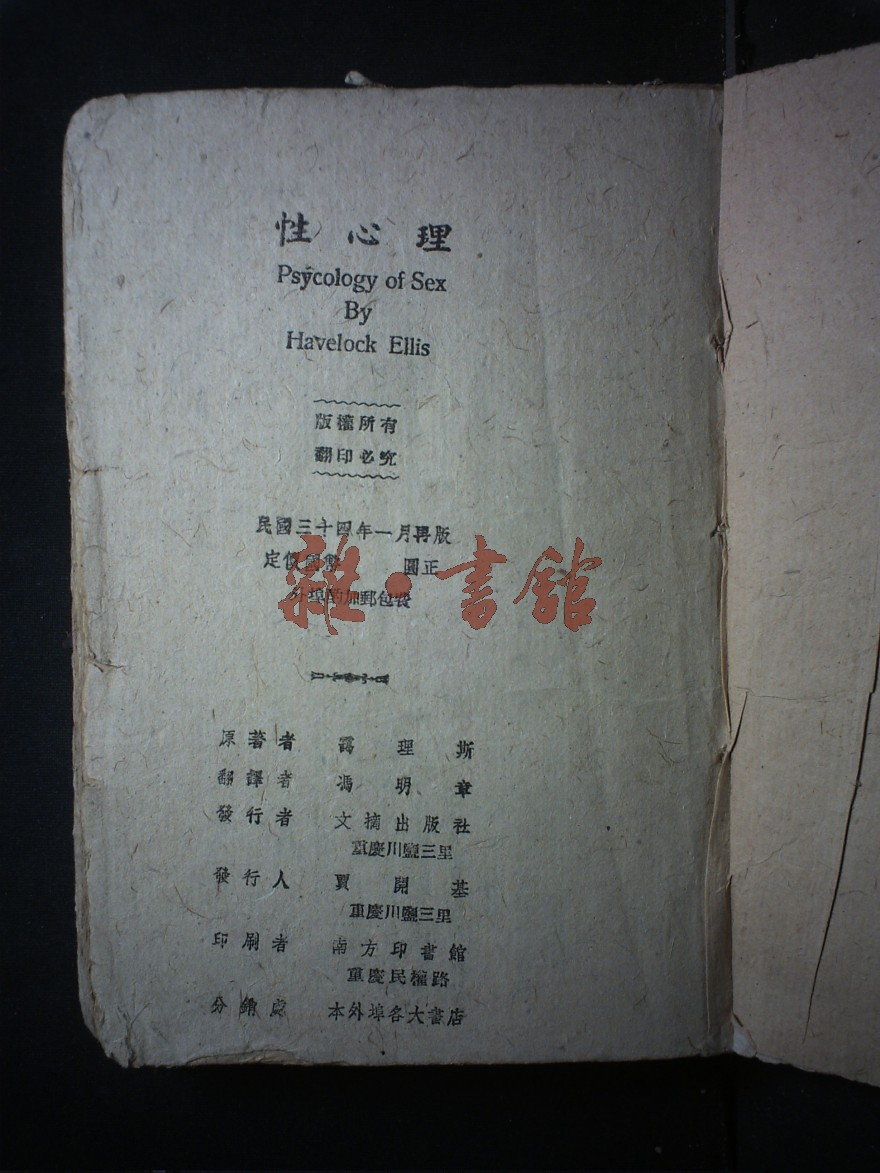 性心理
Psycology of Sex
By
Havelock Ellis
版權所有
翻印必究
民國三十四年一月再版
定價國幣 圓正
外埠酌加郵包費
雜·書館
原著者 靄理斯
翻譯者 馮明章
發行者 文摘出版社
重慶川鹽三里
發行人 賈開基
重慶川鹽三里
印刷者 南方印書館
重慶民權路
分銷處 本外埠各大書店